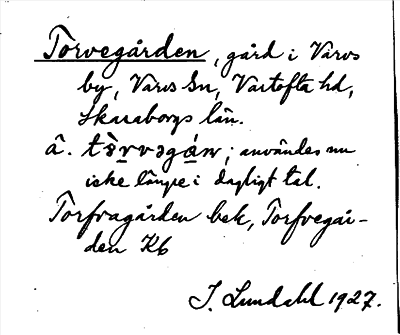 Torvegården, gård i Varvs
by, Varvs sn, Vartofta hd,
Skaraborgs län.
â. tòrvəgán; användes nu
icke längre i dagligt tal.
Torfvagården bek, Torfvegår-
den Kb
I. Lundahl 1927.